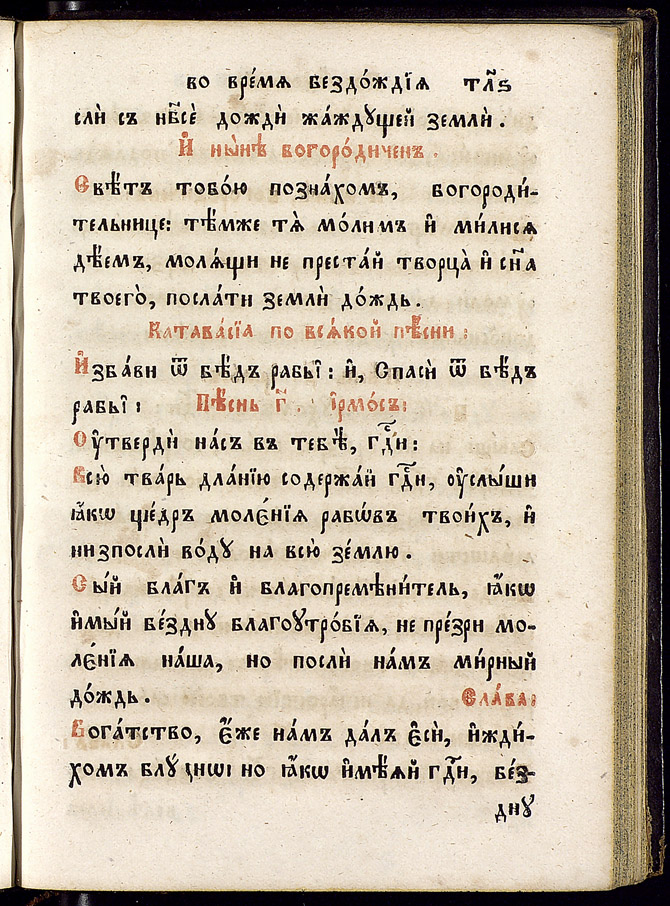 во вре́мѧ бездо́ждїѧ тл҃ѕ
слѝ съ нб҃сѐ дождѝ жа́ждꙋщей землѝ.
И҆ ны́нѣ богоро́диченъ.
Свѣ́тъ тобо́ю позна́хомъ, богороди́-
тельнице: тѣ́мже тѧ̀ мо́лимъ и҆ ми́лисѧ
дѣ́емъ, молѧ́щи не преста́й творца̀ и҆ сн҃а
твоего̀, посла́ти землѝ до́ждь.
Катава́сїа по всѧ́кой пѣ́сни:
И҆зба́ви ѿ бѣ́дъ рабы̑: и҆, Спасѝ ѿ бѣ́дъ
рабы̑: Пѣ́снь г҃. і҆рмо́съ:
Оу҆твердѝ на́съ въ тебѣ̀, гдⷭ҇и:
Всю̀ тва́рь дла́нїю содержа́й гдⷭ҇и, оу҆слы́ши
ꙗ҆́кѡ ще́дръ моле́нїѧ рабѡ́въ твои́хъ, и҆
низпослѝ во́дꙋ на всю̀ зе́млю.
Сы́й бла́гъ и҆ благопремѣни́тель, ꙗ҆́кѡ
и҆мы́й бе́зднꙋ благоꙋтро́бїѧ, не пре́зри мо-
ле́нїѧ на́ша, но послѝ на́мъ ми́рный
до́ждь. Сла́ва:
Бога́тство, є҆́же на́мъ да́лъ є҆сѝ, и҆жди́-
хомъ блꙋ́днѡ: но ꙗ҆́кѡ и҆мѣ́ѧй гдⷭ҇и, бе́з-
днꙋ